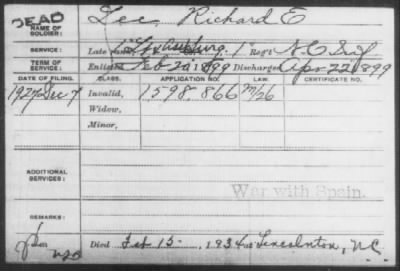 DEAD
NAME OF SOLDIER: Lee, Richard E
SERVICE: Late 1" Regt N.C. Inf
TERM OF SERVICE: Enlisted Feb 20, 1899 Discharged Apr 22, 1899
DATE OF FILING. CLASS. APPLICATION NO. LAW. CERTIFICATE NO.
1927 Dec 7 Invalid, 1598.866 m/26
Widow,
Minor,
ADDITIONAL SERVICES:
War with Spain.
REMARKS:
Died Feb 15, 1934 at Lincolnton, N.C.